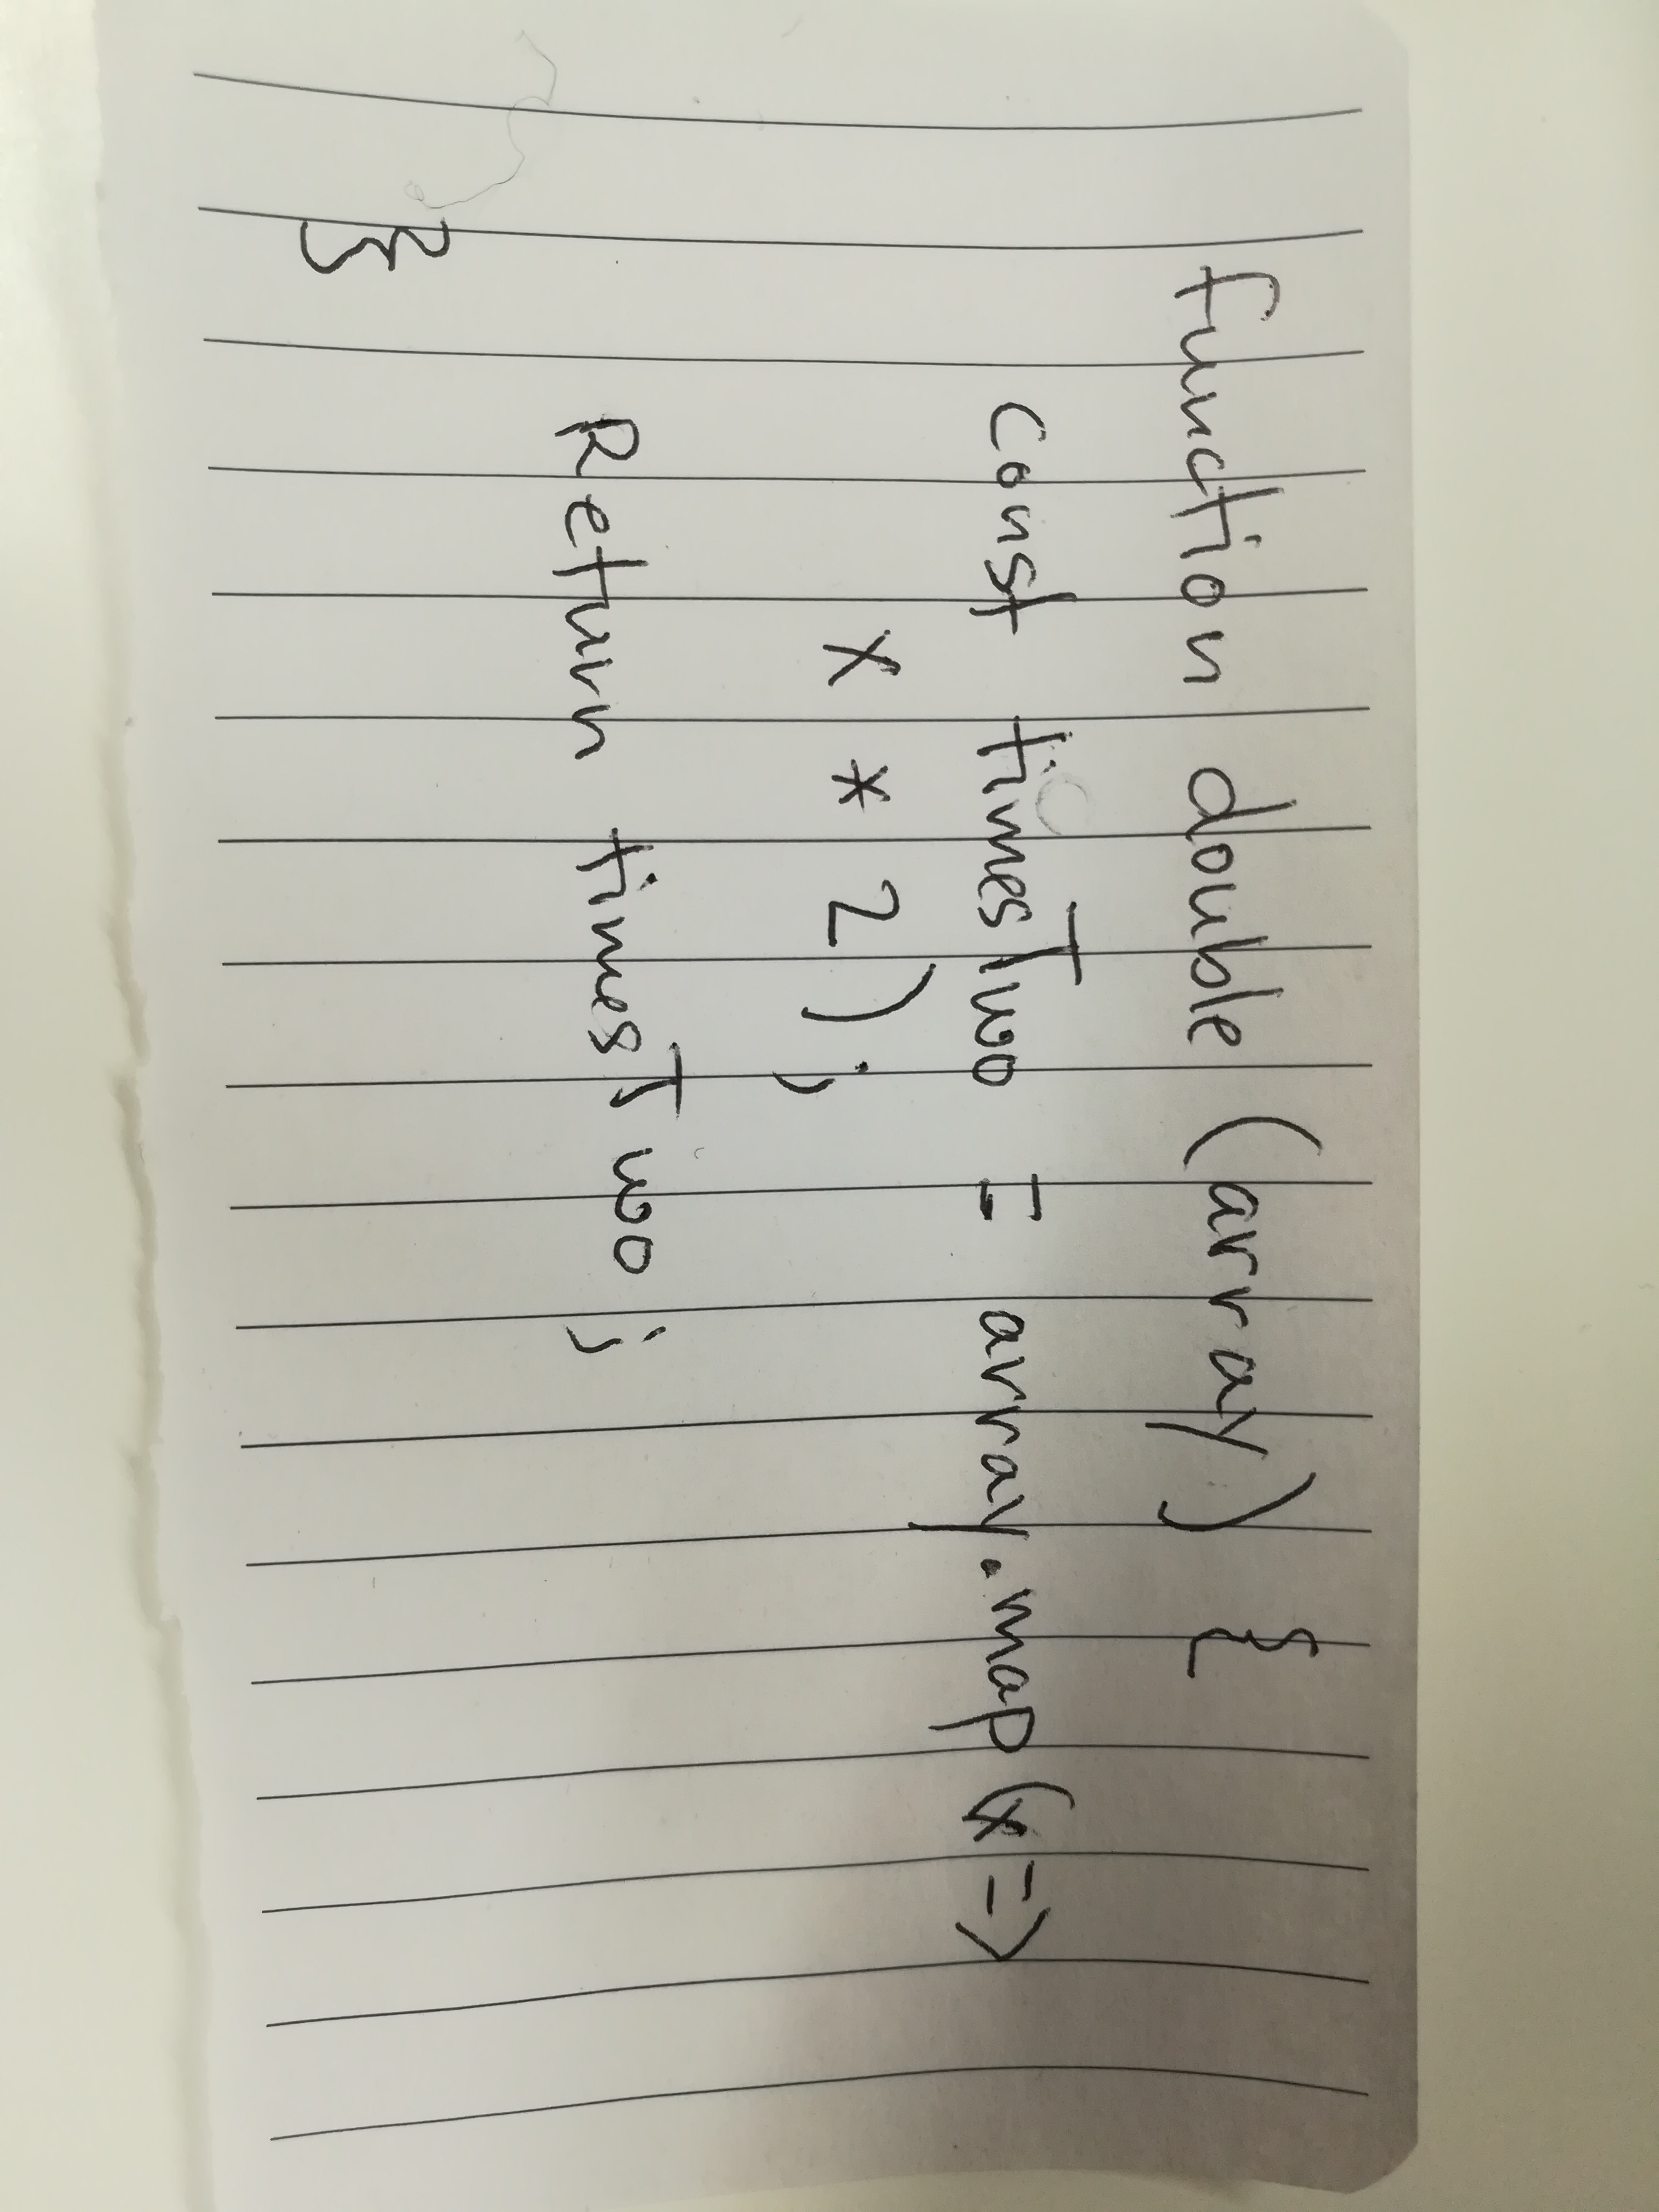 function double (array) {
const timesTwo = array.map (x =>
x * 2);
Return timesTwo;
}